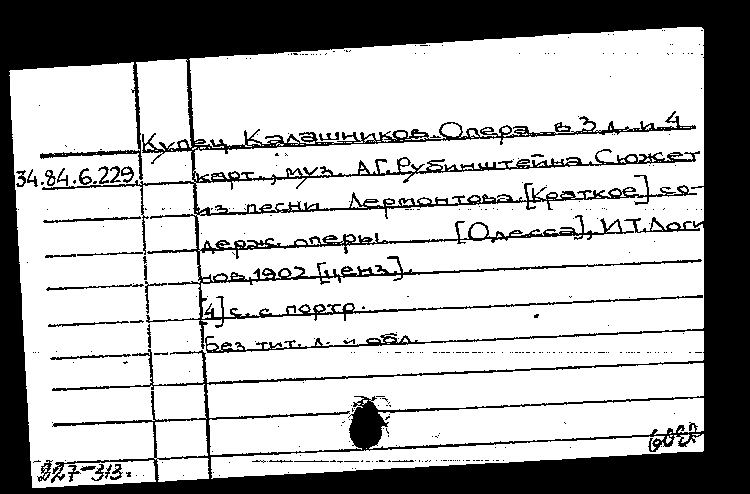 Купец Калашников. Опера в 3 д. и 4
34.84.6.229.
карт., муз. А.Г. Рубинштейна. Сюжет
из песни Лермонтова. [Краткое] со-
держ. оперы. [Одесса], И.Т. Логи
нов, 1902 [ценз.].
[4] с. с портр.
Без тит. л. и обл.
227-313.